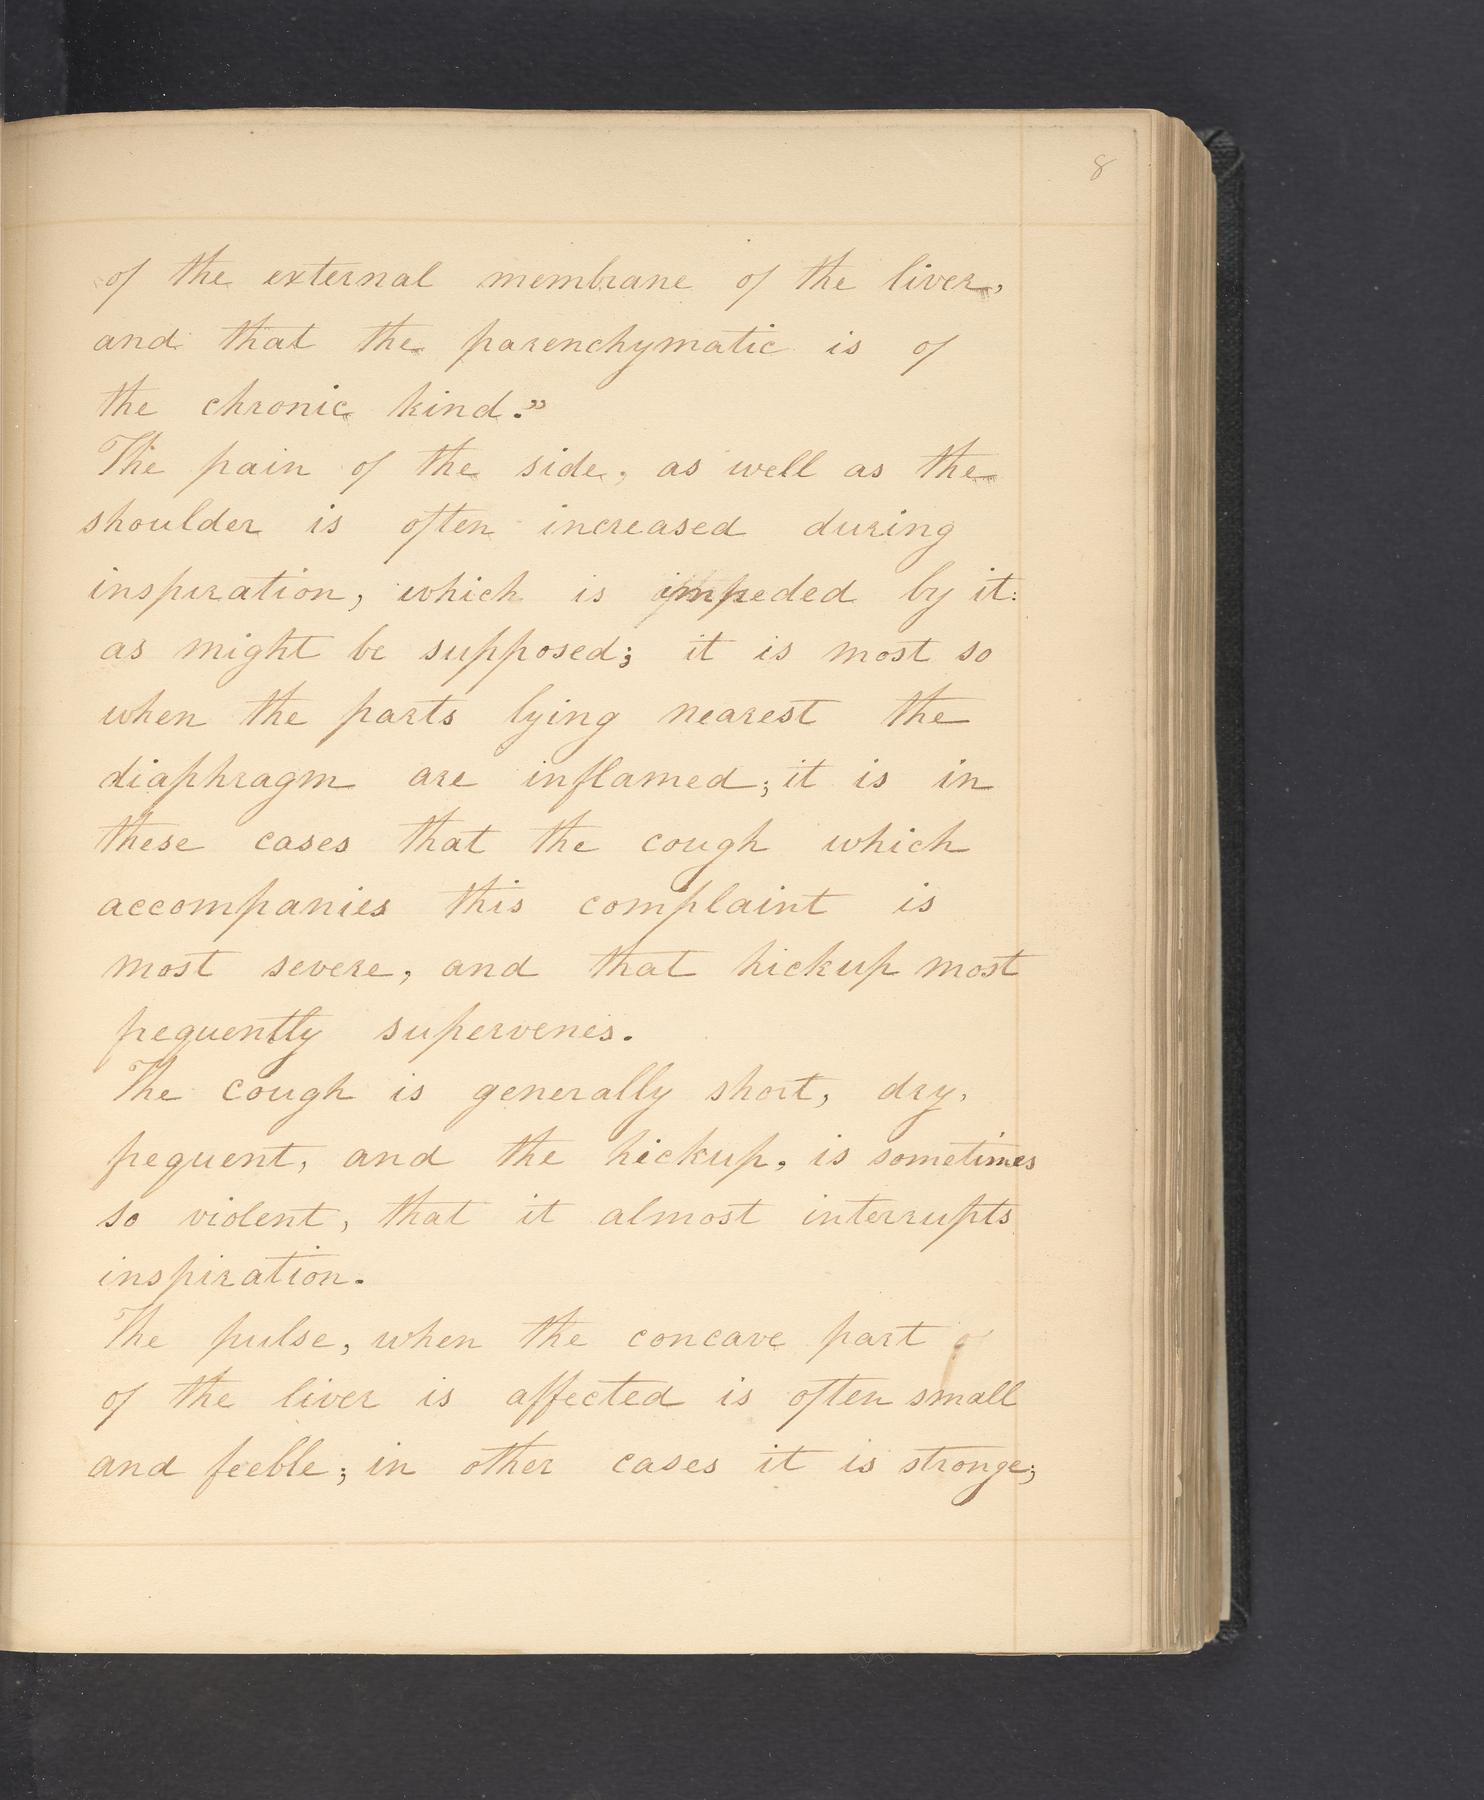 8
of the external membrane of the liver,
and that the parenchymatic is of
the chronic kind."
The pain of the side, as well as the
shoulder is often increased during
inspiration, which is impeded by it:
as might be supposed; it is most so
when the parts lying nearest the
diaphragm are inflamed; it is in
these cases that the cough which
accompanies this complaint is
most severe, and that hickup most
frequently supervenes.
The cough is generally short, dry,
frequent, and the hickup, is sometimes
so violent, that it almost interrupts
inspiration.
The pulse, when the concave part
of the liver is affected is often small
and feeble; in other cases it is stronge;